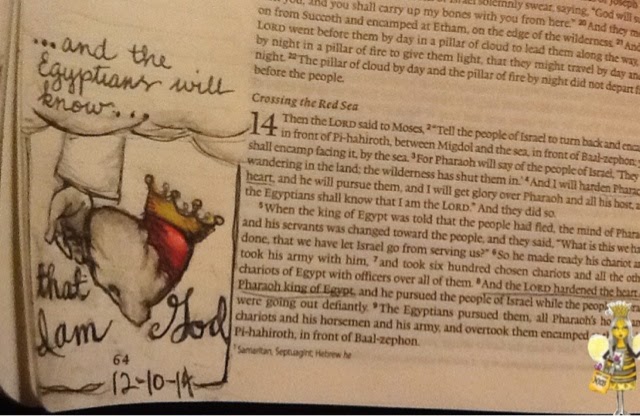 ...and the
Egyptians will
know...
that
I am God
64
12-10-14
solemnly swear, saying, "God will
you, and you shall carry up my bones with you from here." 20 And they
on from Succoth and encamped at Etham, on the edge of the wilderness. 21
LORD went before them by day in a pillar of cloud to lead them along the way,
by night in a pillar of fire to give them light, that they might travel by day an
night. 22 The pillar of cloud by day and the pillar of fire by night did not depart
before the people.
Crossing the Red Sea
14 Then the LORD said to Moses, 2 "Tell the people of Israel to turn back and
in front of Pi-hahiroth, between Migdol and the sea, in front of Baal-zephon;
shall encamp facing it, by the sea. 3 For Pharaoh will say of the people of Israel, 'They
wandering in the land; the wilderness has shut them in.' 4 And I will harden
heart, and he will pursue them, and I will get glory over Pharaoh and all his host,
the Egyptians shall know that I am the LORD." And they did so.
5 When the king of Egypt was told that the people had fled, the mind of
and his servants was changed toward the people, and they said, "What is this we
done, that we have let Israel go from serving us?" 6 So he made ready his chariot
took his army with him, 7 and took six hundred chosen chariots and all the
chariots of Egypt with officers over all of them. 8 And the LORD hardened the heart
Pharaoh king of Egypt, and he pursued the people of Israel while the people
were going out defiantly. 9 The Egyptians pursued them, all Pharaoh's
chariots and his horsemen and his army, and overtook them encamped
Pi-hahiroth, in front of Baal-zephon.
1 Samaritan, Septuagint; Hebrew he